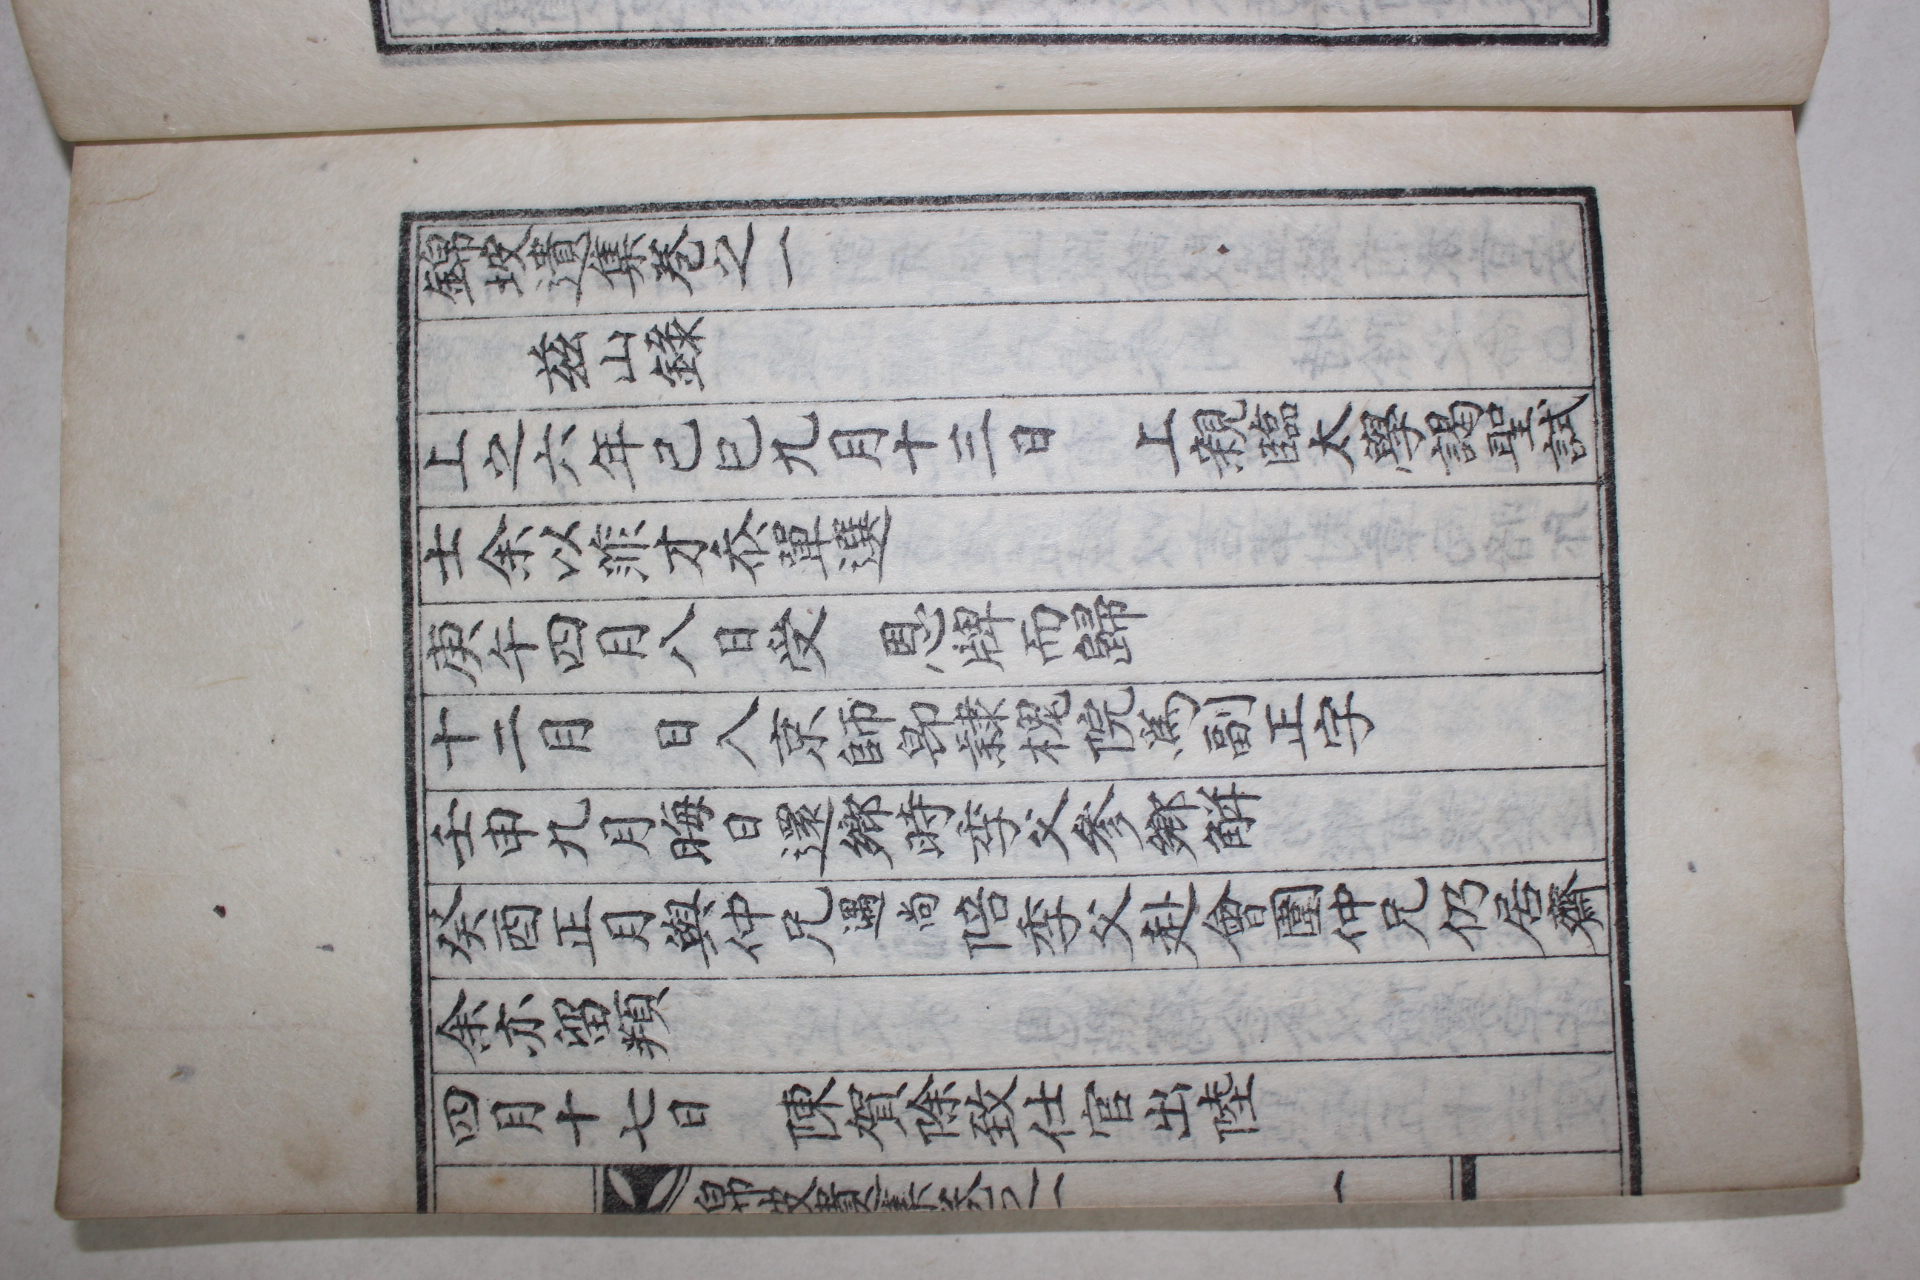 錦坡遺集卷之一
玆山錄
上之六年己巳九月十三日 上親臨太學謁聖試
士余以非才忝單選
庚午四月八日受 恩牌而歸
十二月 日入京師即隸槐院爲副正字
壬申九月晦日還鄕時季父參鄕解
癸酉正月與仲兄 尙陪季父赴會圍仲兄仍居齋
余亦留
四月十七日 陳賀除致仕官出陸
錦坡遺集卷之一 一